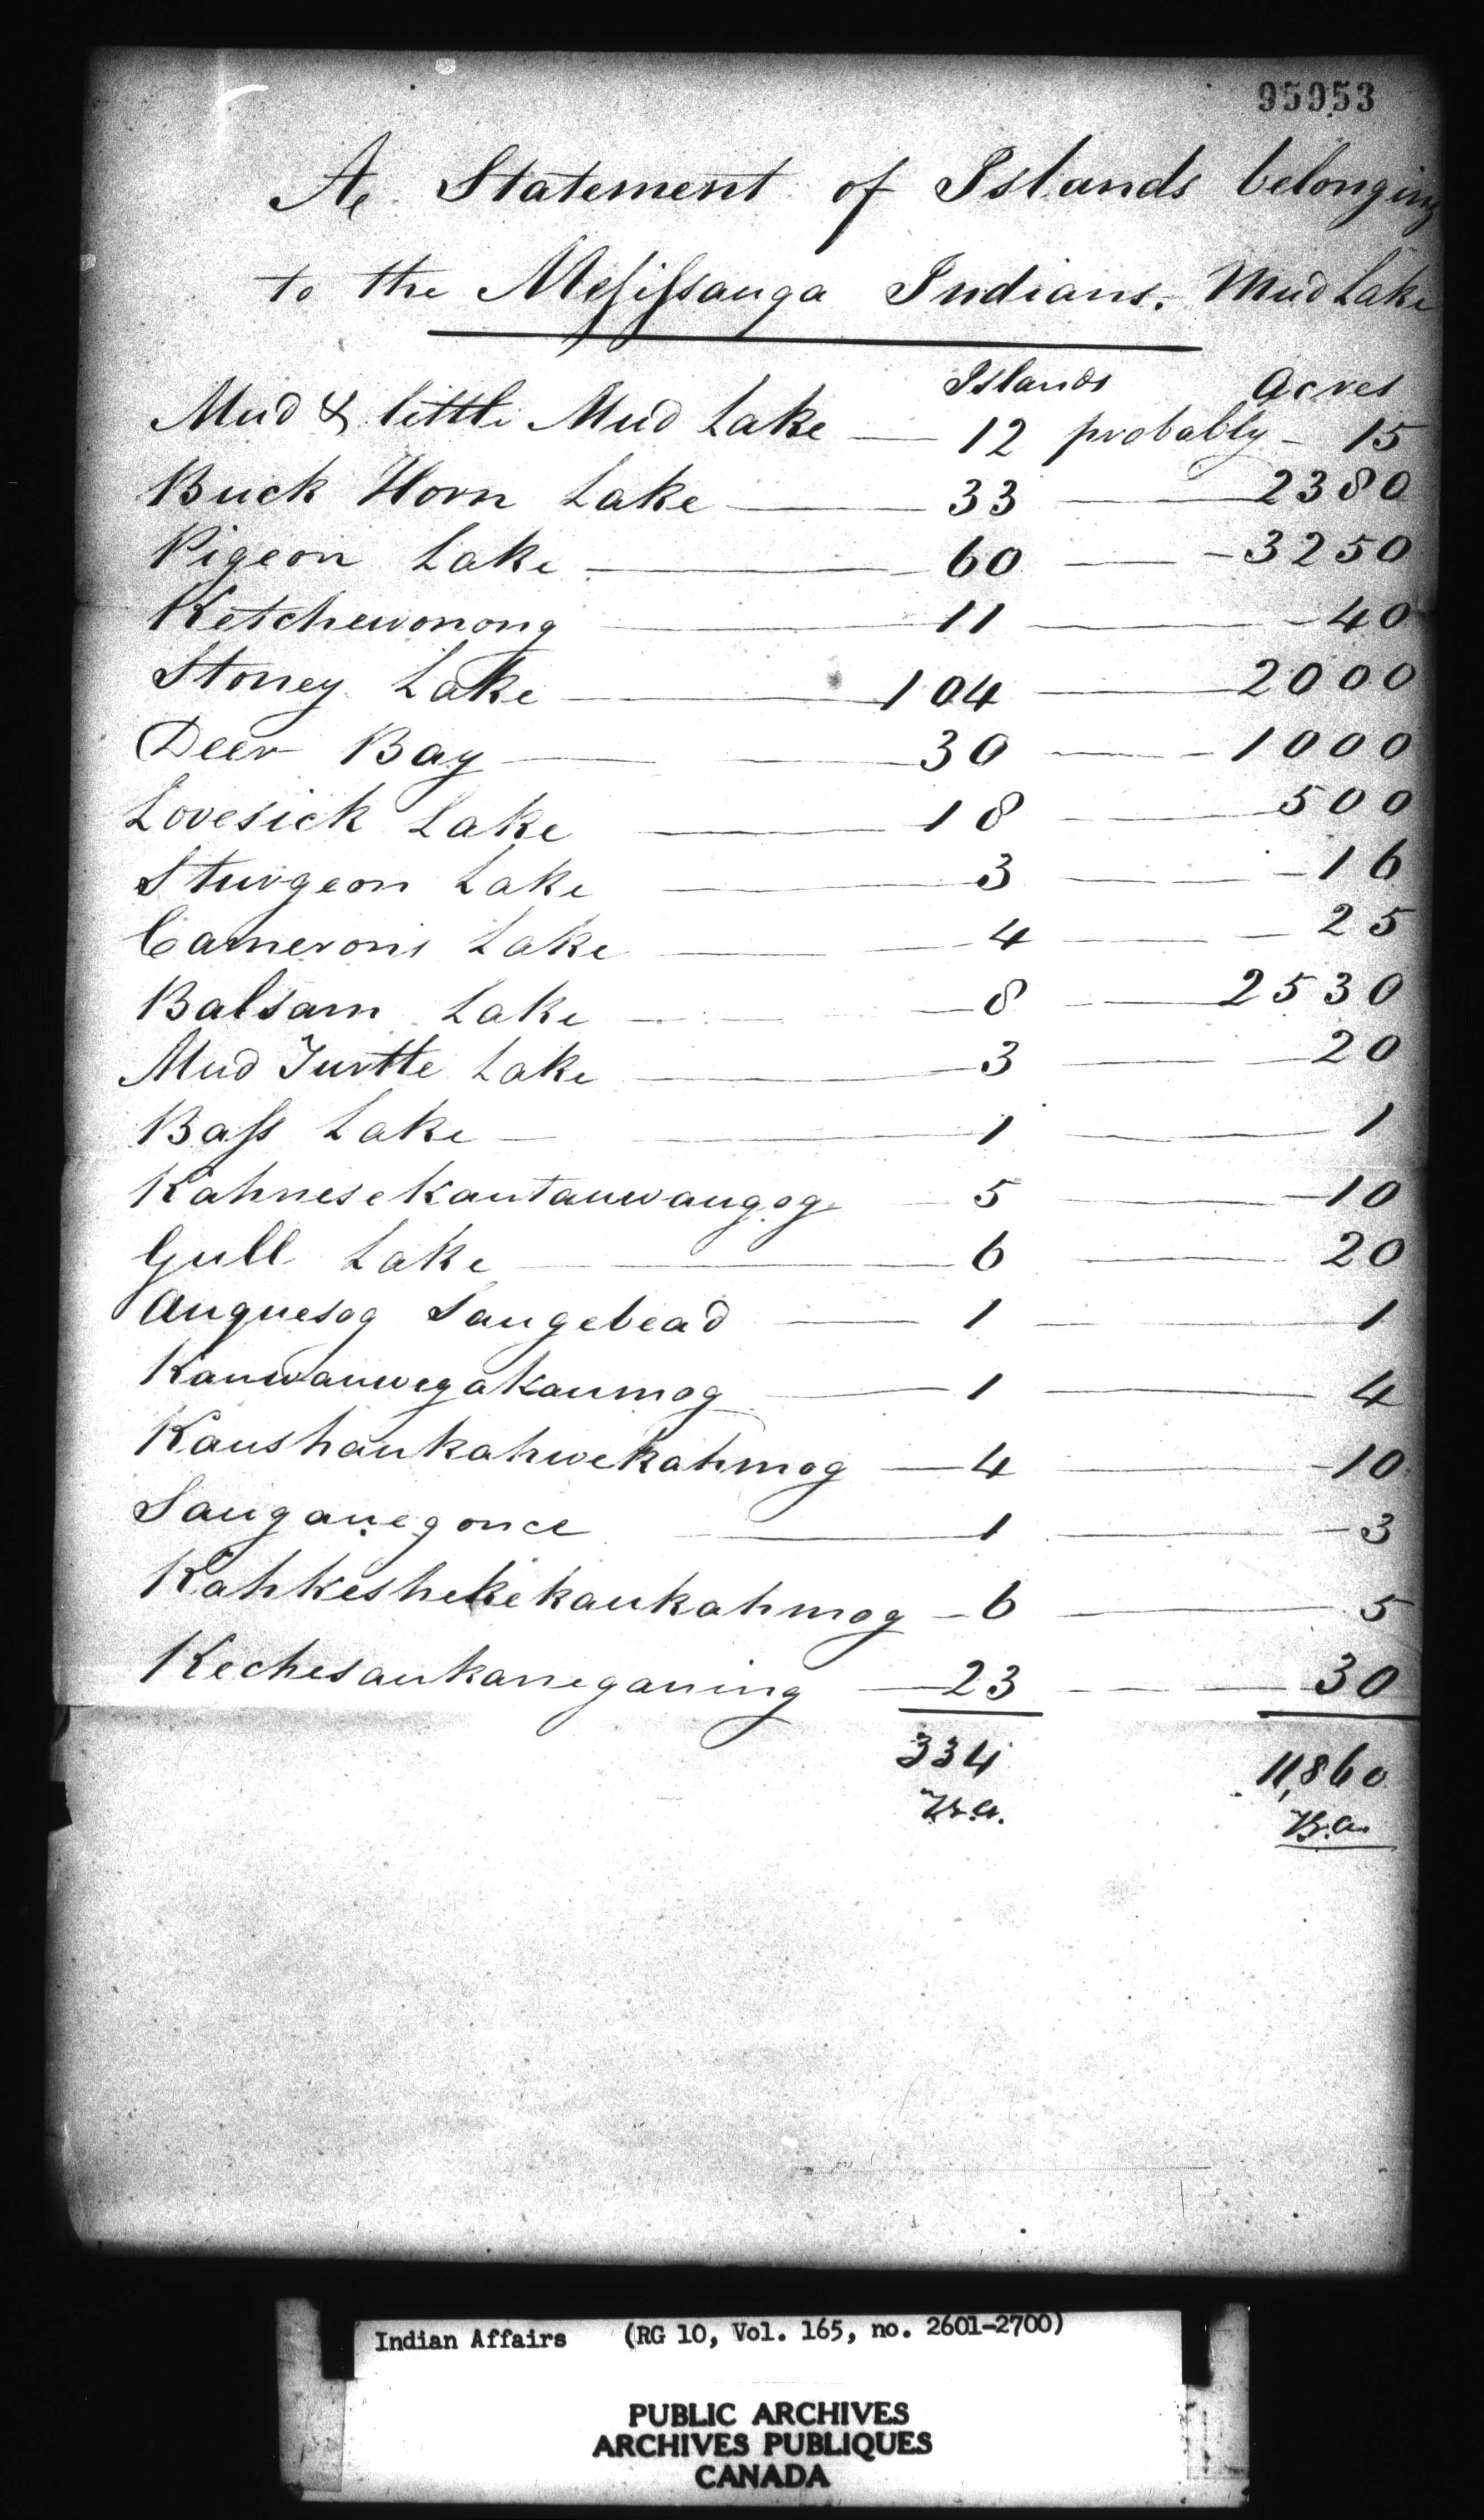 95953
A Statement of Islands belonging
to the Messissauga Indians. Mud Lake
Islands Acres
Mud & little Mud Lake — 12 probably - 15
Buck Horn Lake — 33 — 2380
Pigeon Lake — 60 — 3250
Ketchewonong — 11 — 40
Stoney Lake — 104 — 2000
Deer Bay — 30 — 1000
Lovesick Lake — 18 — 500
Sturgeon Lake — 3 — 16
Camerons Lake — 4 — 25
Balsam Lake — 8 — 2530
Mud Turtle Lake — 3 — 20
Bass Lake — 1 — 1
Kahnesekautauwaugog 5 — 10
Gull Lake — 6 — 20
Auquesog Saugebead — 1 — 1
Kauwauwegakaumog — 1 — 4
Kaushaukahwekahmog — 4 — 10
Sauganegonce — 1 — 3
Kahkeshekekaukahmog — 6 — 5
Kechesaukaneganing — 23 — 30
334 11,860
Indian Affairs (RG 10, Vol. 165, no. 2601-2700)
PUBLIC ARCHIVES
ARCHIVES PUBLIQUES
CANADA